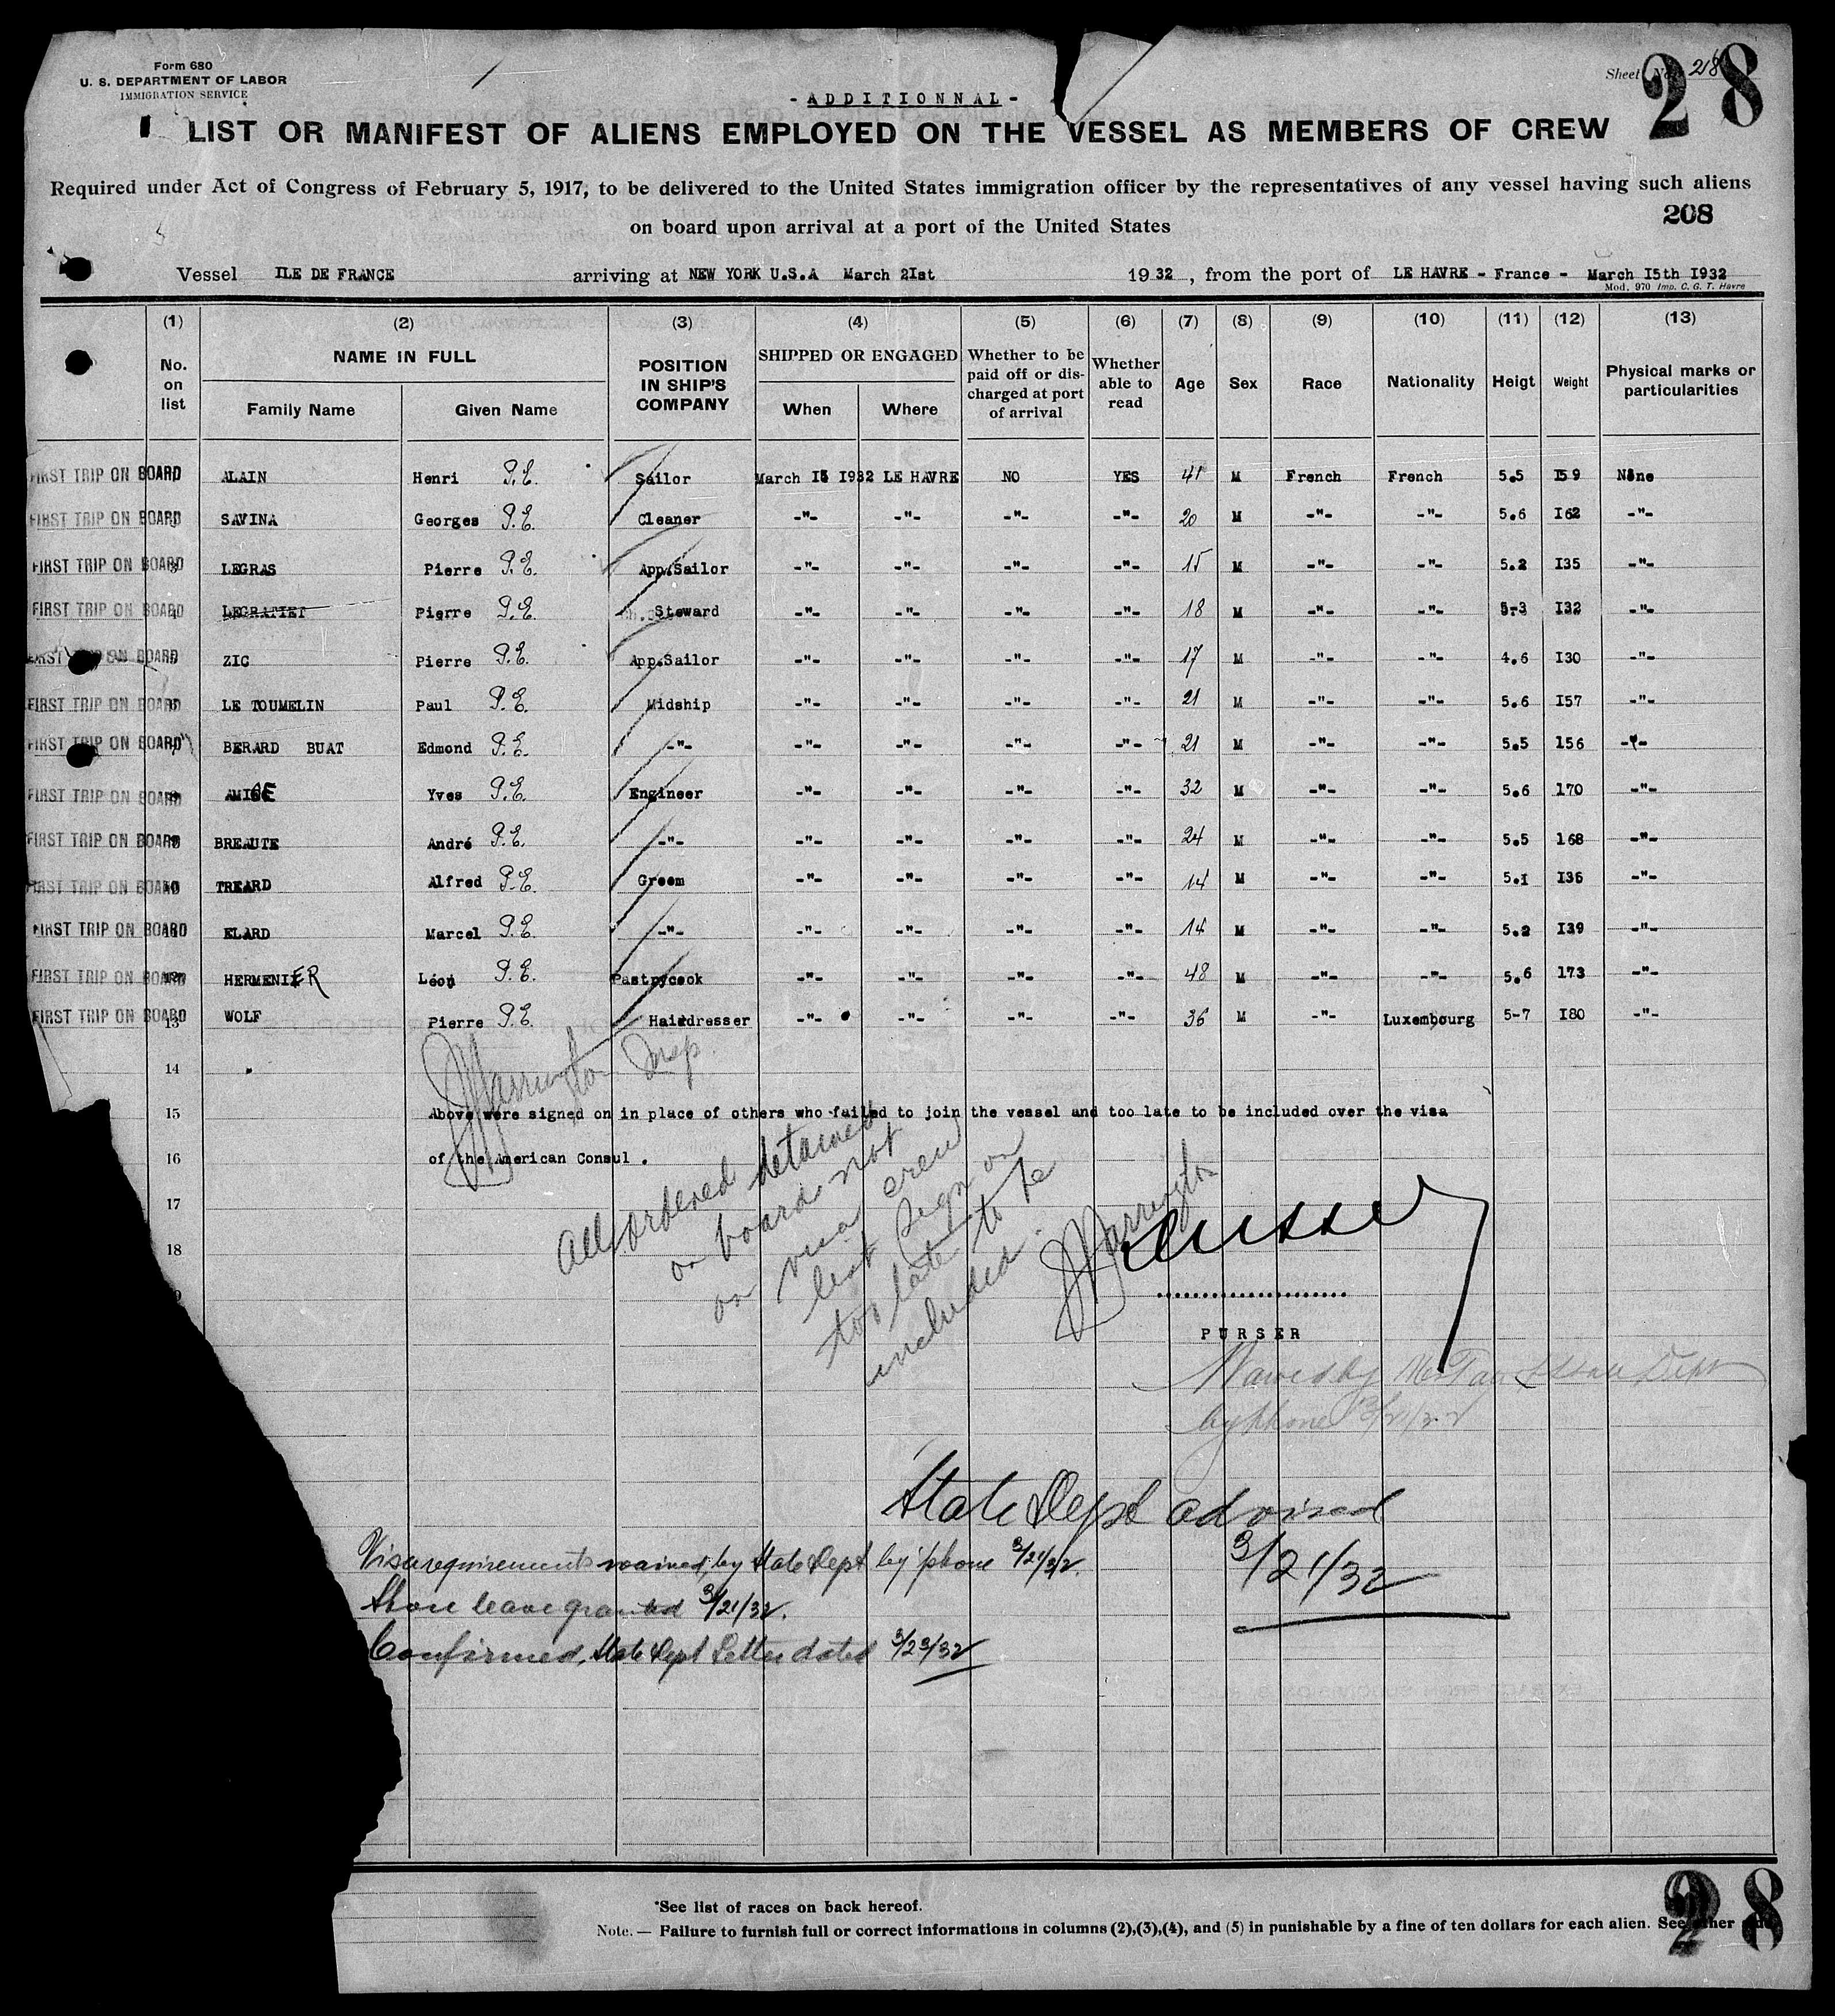 Form 680
U. S. DEPARTMENT OF LABOR
IMMIGRATION SERVICE
Sheet No. 218
28
- ADDITIONNAL -
LIST OR MANIFEST OF ALIENS EMPLOYED ON THE VESSEL AS MEMBERS OF CREW
Required under Act of Congress of February 5, 1917, to be delivered to the United States immigration officer by the representatives of any vessel having such aliens
on board upon arrival at a port of the United States
208
Vessel ILE DE FRANCE arriving at NEW YORK U.S.A March 2Ist 1932, from the port of LE HAVRE - France - March I5th I932
Mod. 970 Imp. C. G. T. Havre
(1) (2) (3) (4) (5) (6) (7) (8) (9) (10) (11) (12) (13)
No. on list NAME IN FULL Family Name Given Name POSITION IN SHIP'S COMPANY SHIPPED OR ENGAGED When Where Whether to be paid off or discharged at port of arrival Whether able to read Age Sex Race Nationality Heigt Weight Physical marks or particularities
FIRST TRIP ON BOARD ALAIN Henri P.E. Sailor March I5 I932 LE HAVRE NO YES 41 M French French 5.5 I59 None
FIRST TRIP ON BOARD SAVINA Georges P.E. Cleaner -"- -"- -"- -"- 20 M -"- -"- 5.6 I62 -"-
FIRST TRIP ON BOARD 3 LEGRAS Pierre P.E. App.Sailor -"- -"- -"- -"- 15 M -"- -"- 5.2 I35 -"-
FIRST TRIP ON BOARD 4 LEGRATIET Pierre P.E. Steward -"- -"- -"- -"- 18 M -"- -"- 5-3 I32 -"-
FIRST TRIP ON BOARD ZIC Pierre P.E. App.Sailor -"- -"- -"- -"- 17 M -"- -"- 4.6 I30 -"-
FIRST TRIP ON BOARD LE TOUMELIN Paul P.E. Midship -"- -"- -"- -"- 21 M -"- -"- 5.6 I57 -"-
FIRST TRIP ON BOARD 7 BERARD BUAT Edmond P.E. -"- -"- -"- -"- -"- 21 M -"- -"- 5.5 156 -"-
FIRST TRIP ON BOARD AMICE Yves P.E. Engineer -"- -"- -"- -"- 32 M -"- -"- 5.6 170 -"-
FIRST TRIP ON BOARD BREAUTE André P.E. -"- -"- -"- -"- -"- 24 M -"- -"- 5.5 168 -"-
FIRST TRIP ON BOARD 10 TREARD Alfred P.E. Groom -"- -"- -"- -"- 14 M -"- -"- 5.1 I36 -"-
FIRST TRIP ON BOARD 11 ELARD Marcel P.E. -"- -"- -"- -"- -"- 14 M -"- -"- 5.2 I39 -"-
FIRST TRIP ON BOARD 12 HERMENIER Léon P.E. Pastrycook -"- -"- -"- -"- 48 M -"- -"- 5.6 173 -"-
FIRST TRIP ON BOARD 13 WOLF Pierre P.E. Hairdresser -"- -"- -"- -"- 36 M -"- Luxembourg 5-7 I80 -"-
JJ Warrington Insp.
14
15 Above were signed on in place of others who failed to join the vessel and too late to be included over the visa
16 of the American Consul .
17
18
All ordered detained
on board not
on visa crew
list sign on
too late to be
included.
JJ Warrington
PURSER
Waived by State Dept
by phone 3/21/32
State Dept advised
3/21/32
Visa requirements waived, by State Dept by 'phone 3/21/32.
Shore leave granted 3/21/32.
Confirmed, State Dept Letter dated 3/23/32
*See list of races on back hereof.
Note. — Failure to furnish full or correct informations in columns (2),(3),(4), and (5) in punishable by a fine of ten dollars for each alien. See other side
28